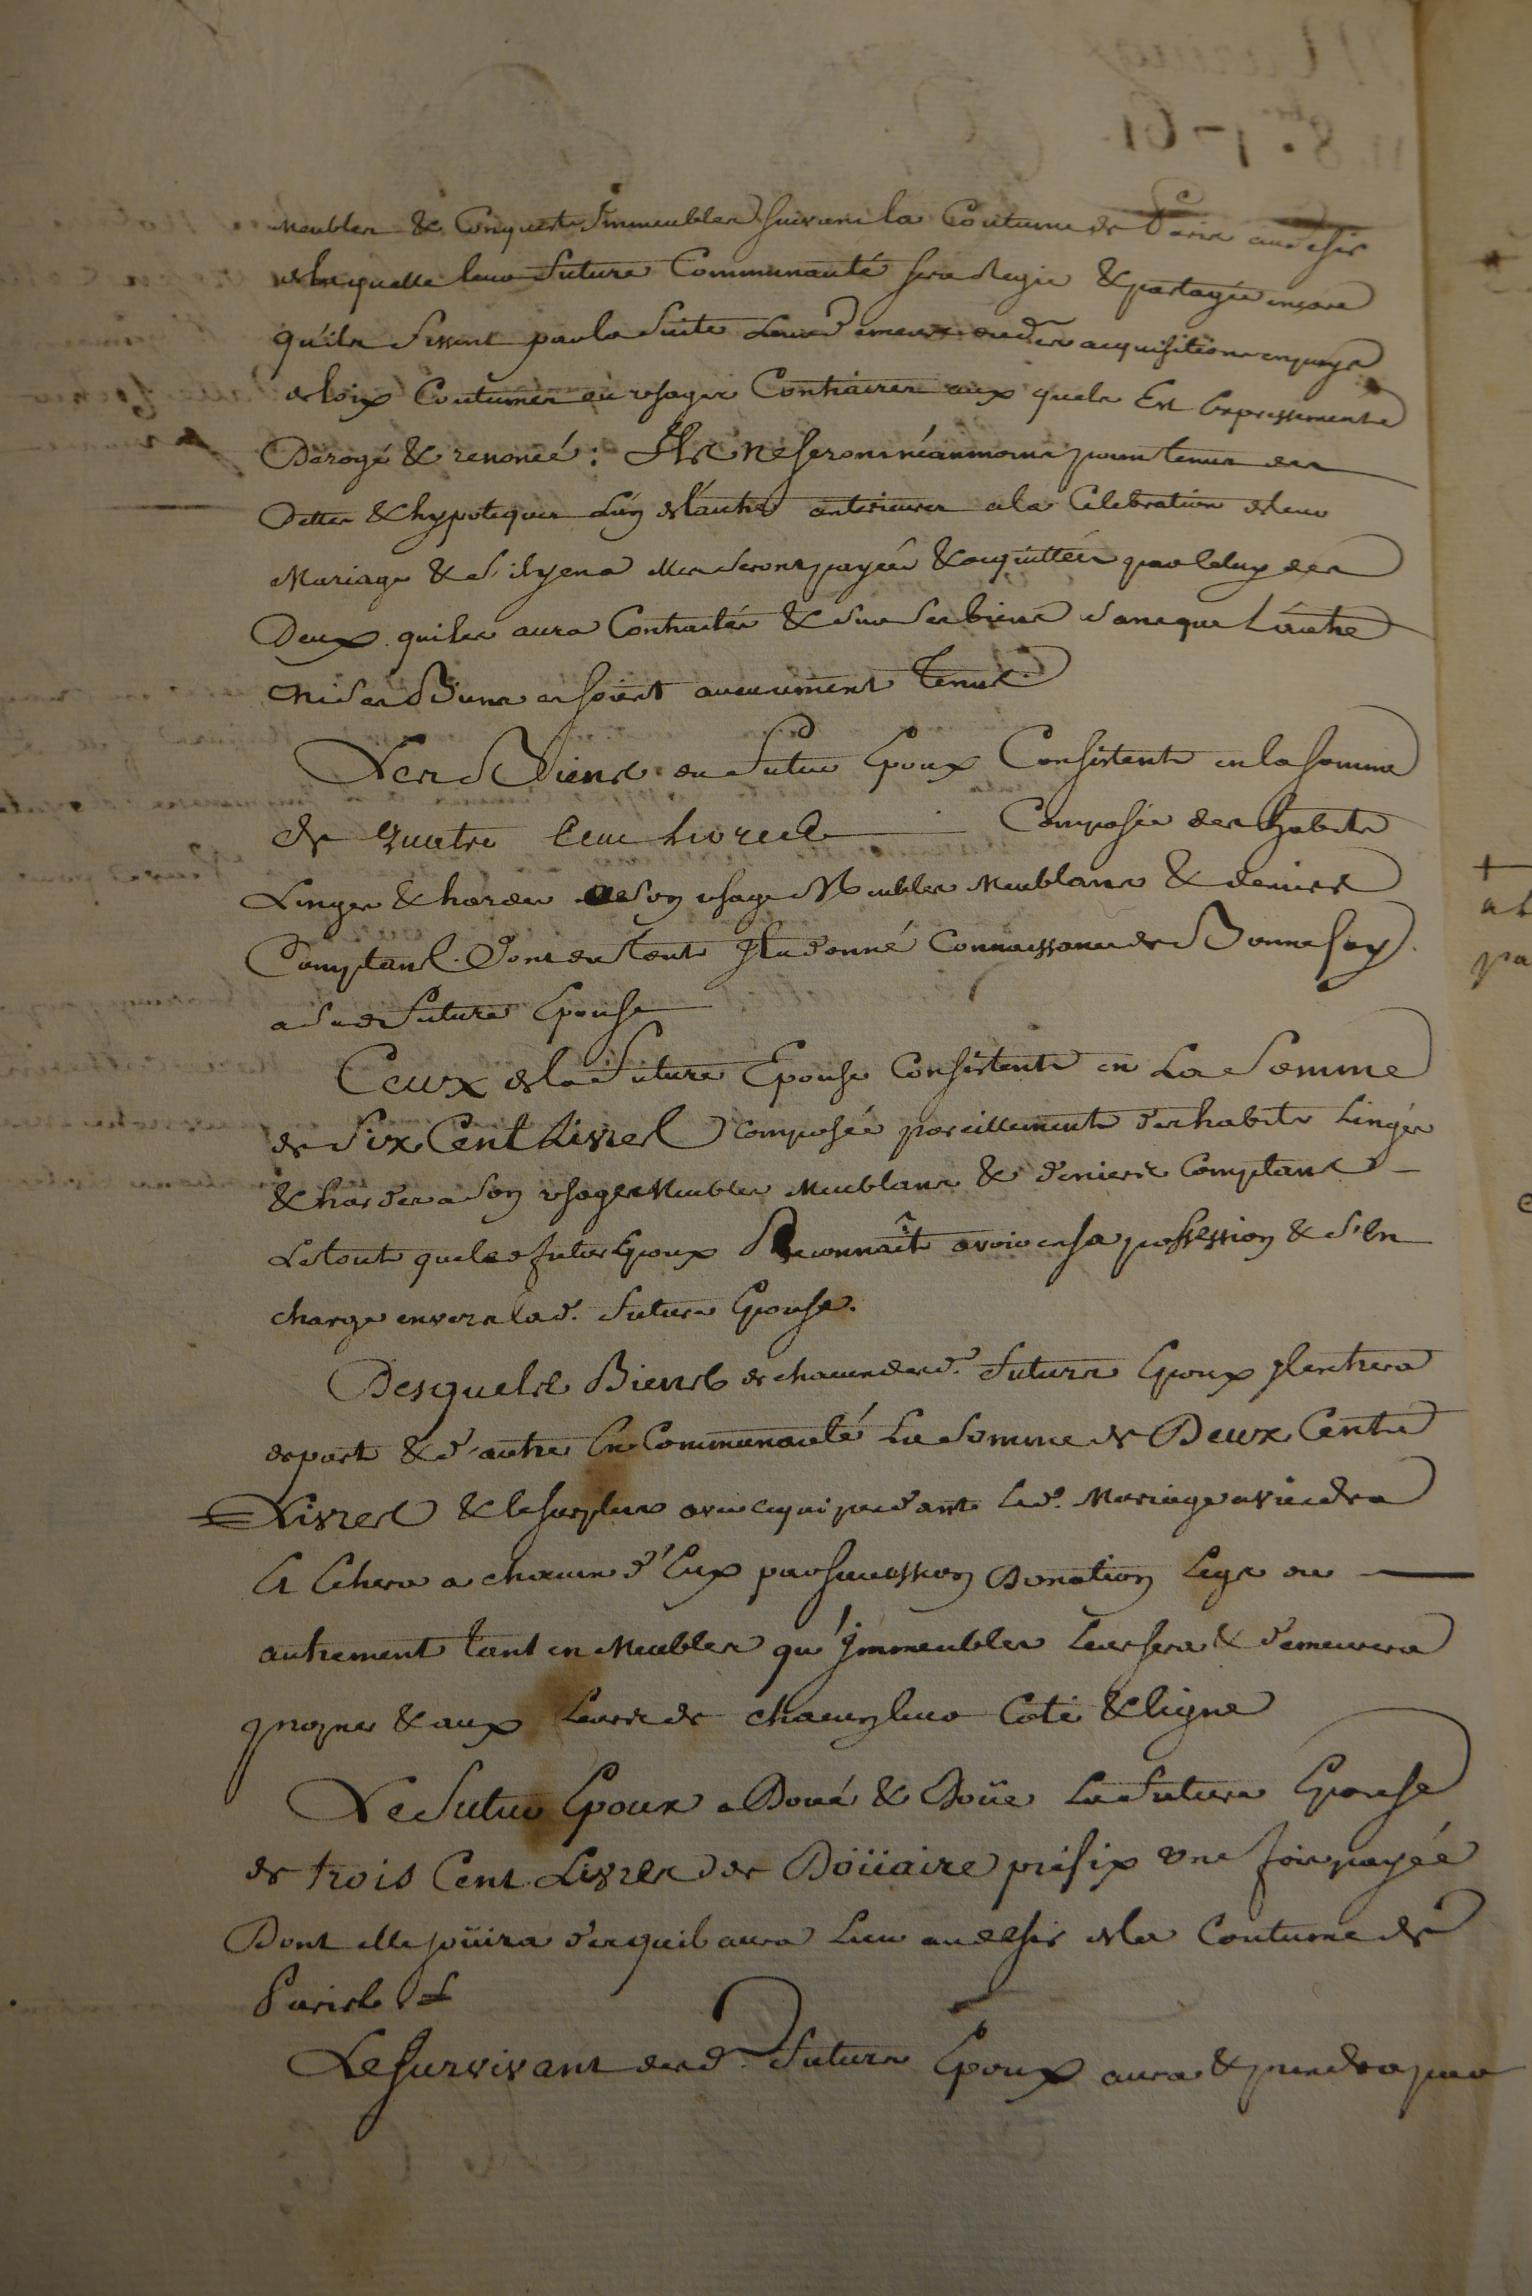 Meubles & Conquests Immeubles suivant la Coutume de Paris au desir
de laquelle leur future Communauté sera Regie & partagée encore
qu'ils fissent par la suite leurs demeures ou des acquisitions en pays
de loix Coutumes ou usages Contraires aux quels Est Expressement
Derogé & renoncé : Ils ne seront néanmoins point tenus des
Dettes & hypoteques L'un de l'autre anterieures a la Celebration de leur
Mariage & s'il y en a elles seront payées & acquittées par Celuy des
Deux qui les aura Contractées & sur ses biens sans que L'autre
ni ses Biens en soient aucunement Tenus.
Les Biens du Futur Epoux Consistent en la somme
de quatre Cent Livres Composée des habits
Linges & hardes a son usage Meubles Meublans & deniers
Comptans. Dont du tout Il a donné Connaissance de Bonne foy
a sade future Epouse
Ceux de la Future Epouse Consistent en La Somme
de Six Cent Livres Composée pareillement des habits Linges
& hardes a son usage Meubles Meublans & deniers Comptans
Le tout que led futur Epoux Reconnaît avoir en sa possession & s'En
charge envers lad. future Epouse.
Desquels Biens de chacun desd. Futurs Epoux Il entrera
de part & d'autre En Communauté La Somme de Deux Cents
Livres & le surplus avec ce qui pendant led. Mariage aviendra
Et Echera a chacun d'Eux par succession Donation Legs ou
autrement tant en Meubles qu'Immeubles Leur sera & demeurera
propre & aux Leurs de chacun leur Coté & ligne
Le Futur Epoux a Doué & Doüe La Future Epouse
de trois Cent Livres de Doüaire préfix une fois payée
Dont elle joüira dès qu'il aura Lieu au desir de la Coutume de
Paris
Le Survivant desd. Futurs Epoux aura & prendra par